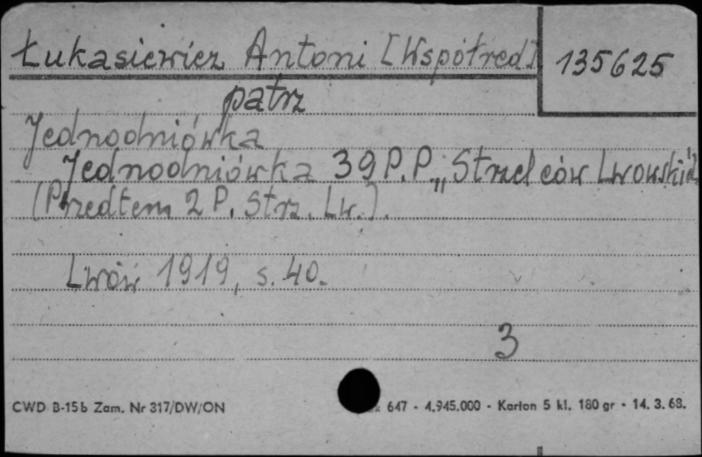 Łukasiewicz Antoni [Współred]
135625
patrz
Jednodniówka
Jednodniówka 39 P.P. „Strzelców Lwowskich"
(Przedtem 2 P. Strz. Lw.).
Lwów 1919, s. 40.
3
CWD B-15b Zam. Nr 317/DW/ON
647 - 4.945.000 - Karton 5 kl. 180 gr - 14. 3. 63.